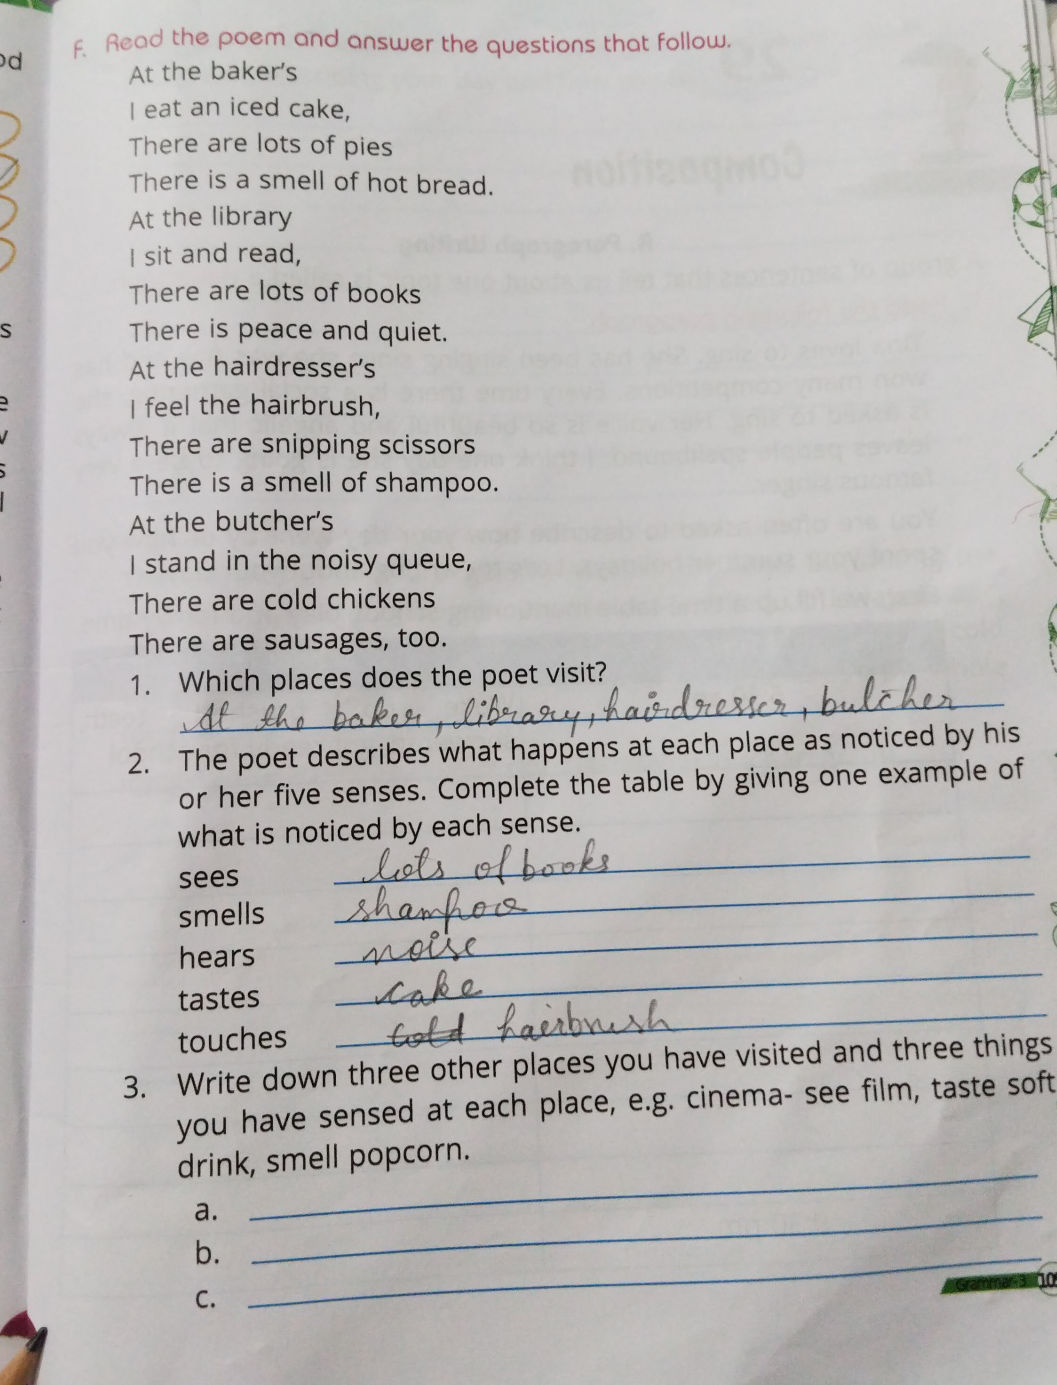 F. Read the poem and answer the questions that follow.
At the baker's
I eat an iced cake,
There are lots of pies
There is a smell of hot bread.
At the library
I sit and read,
There are lots of books
There is peace and quiet.
At the hairdresser's
I feel the hairbrush,
There are snipping scissors
There is a smell of shampoo.
At the butcher's
I stand in the noisy queue,
There are cold chickens
There are sausages, too.
1. Which places does the poet visit?
At the baker, library, hairdresser, butcher
2. The poet describes what happens at each place as noticed by his
or her five senses. Complete the table by giving one example of
what is noticed by each sense.
sees lots of books
smells shampoo
hears noise
tastes cake
touches cold hairbrush
3. Write down three other places you have visited and three things
you have sensed at each place, e.g. cinema- see film, taste soft
drink, smell popcorn.
a.
b.
c.
Grammar-3